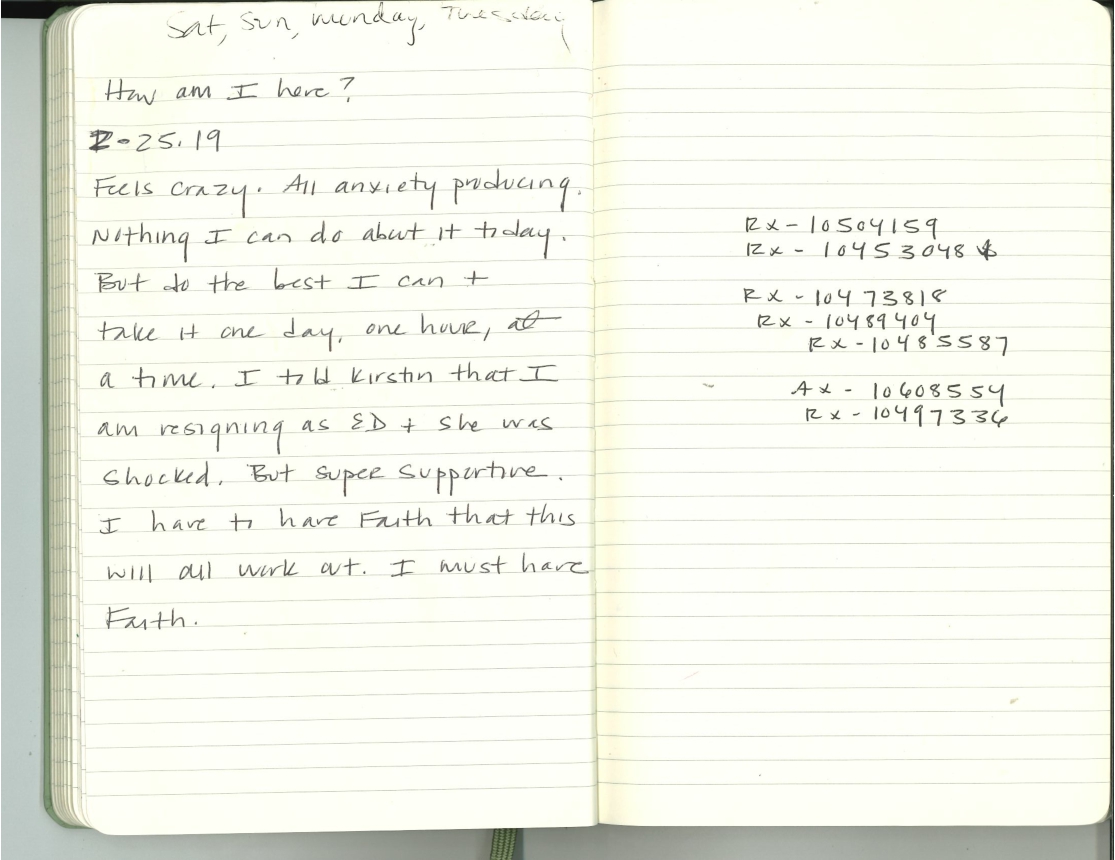 Sat, Sun, munday, Tuesday
How am I here?
2-25.19
Feels crazy. All anxiety producing.
Nothing I can do about it today.
But do the best I can +
take it one day, one hour, at
a time. I told Kirstin that I
am resigning as ED + she was
shocked. But super supportive.
I have to have Faith that this
will all work out. I must have
Faith.
Rx - 10504159
Rx - 10453048
Rx - 10473818
Rx - 10489404
Rx - 10485587
Rx - 10608554
Rx - 10497336